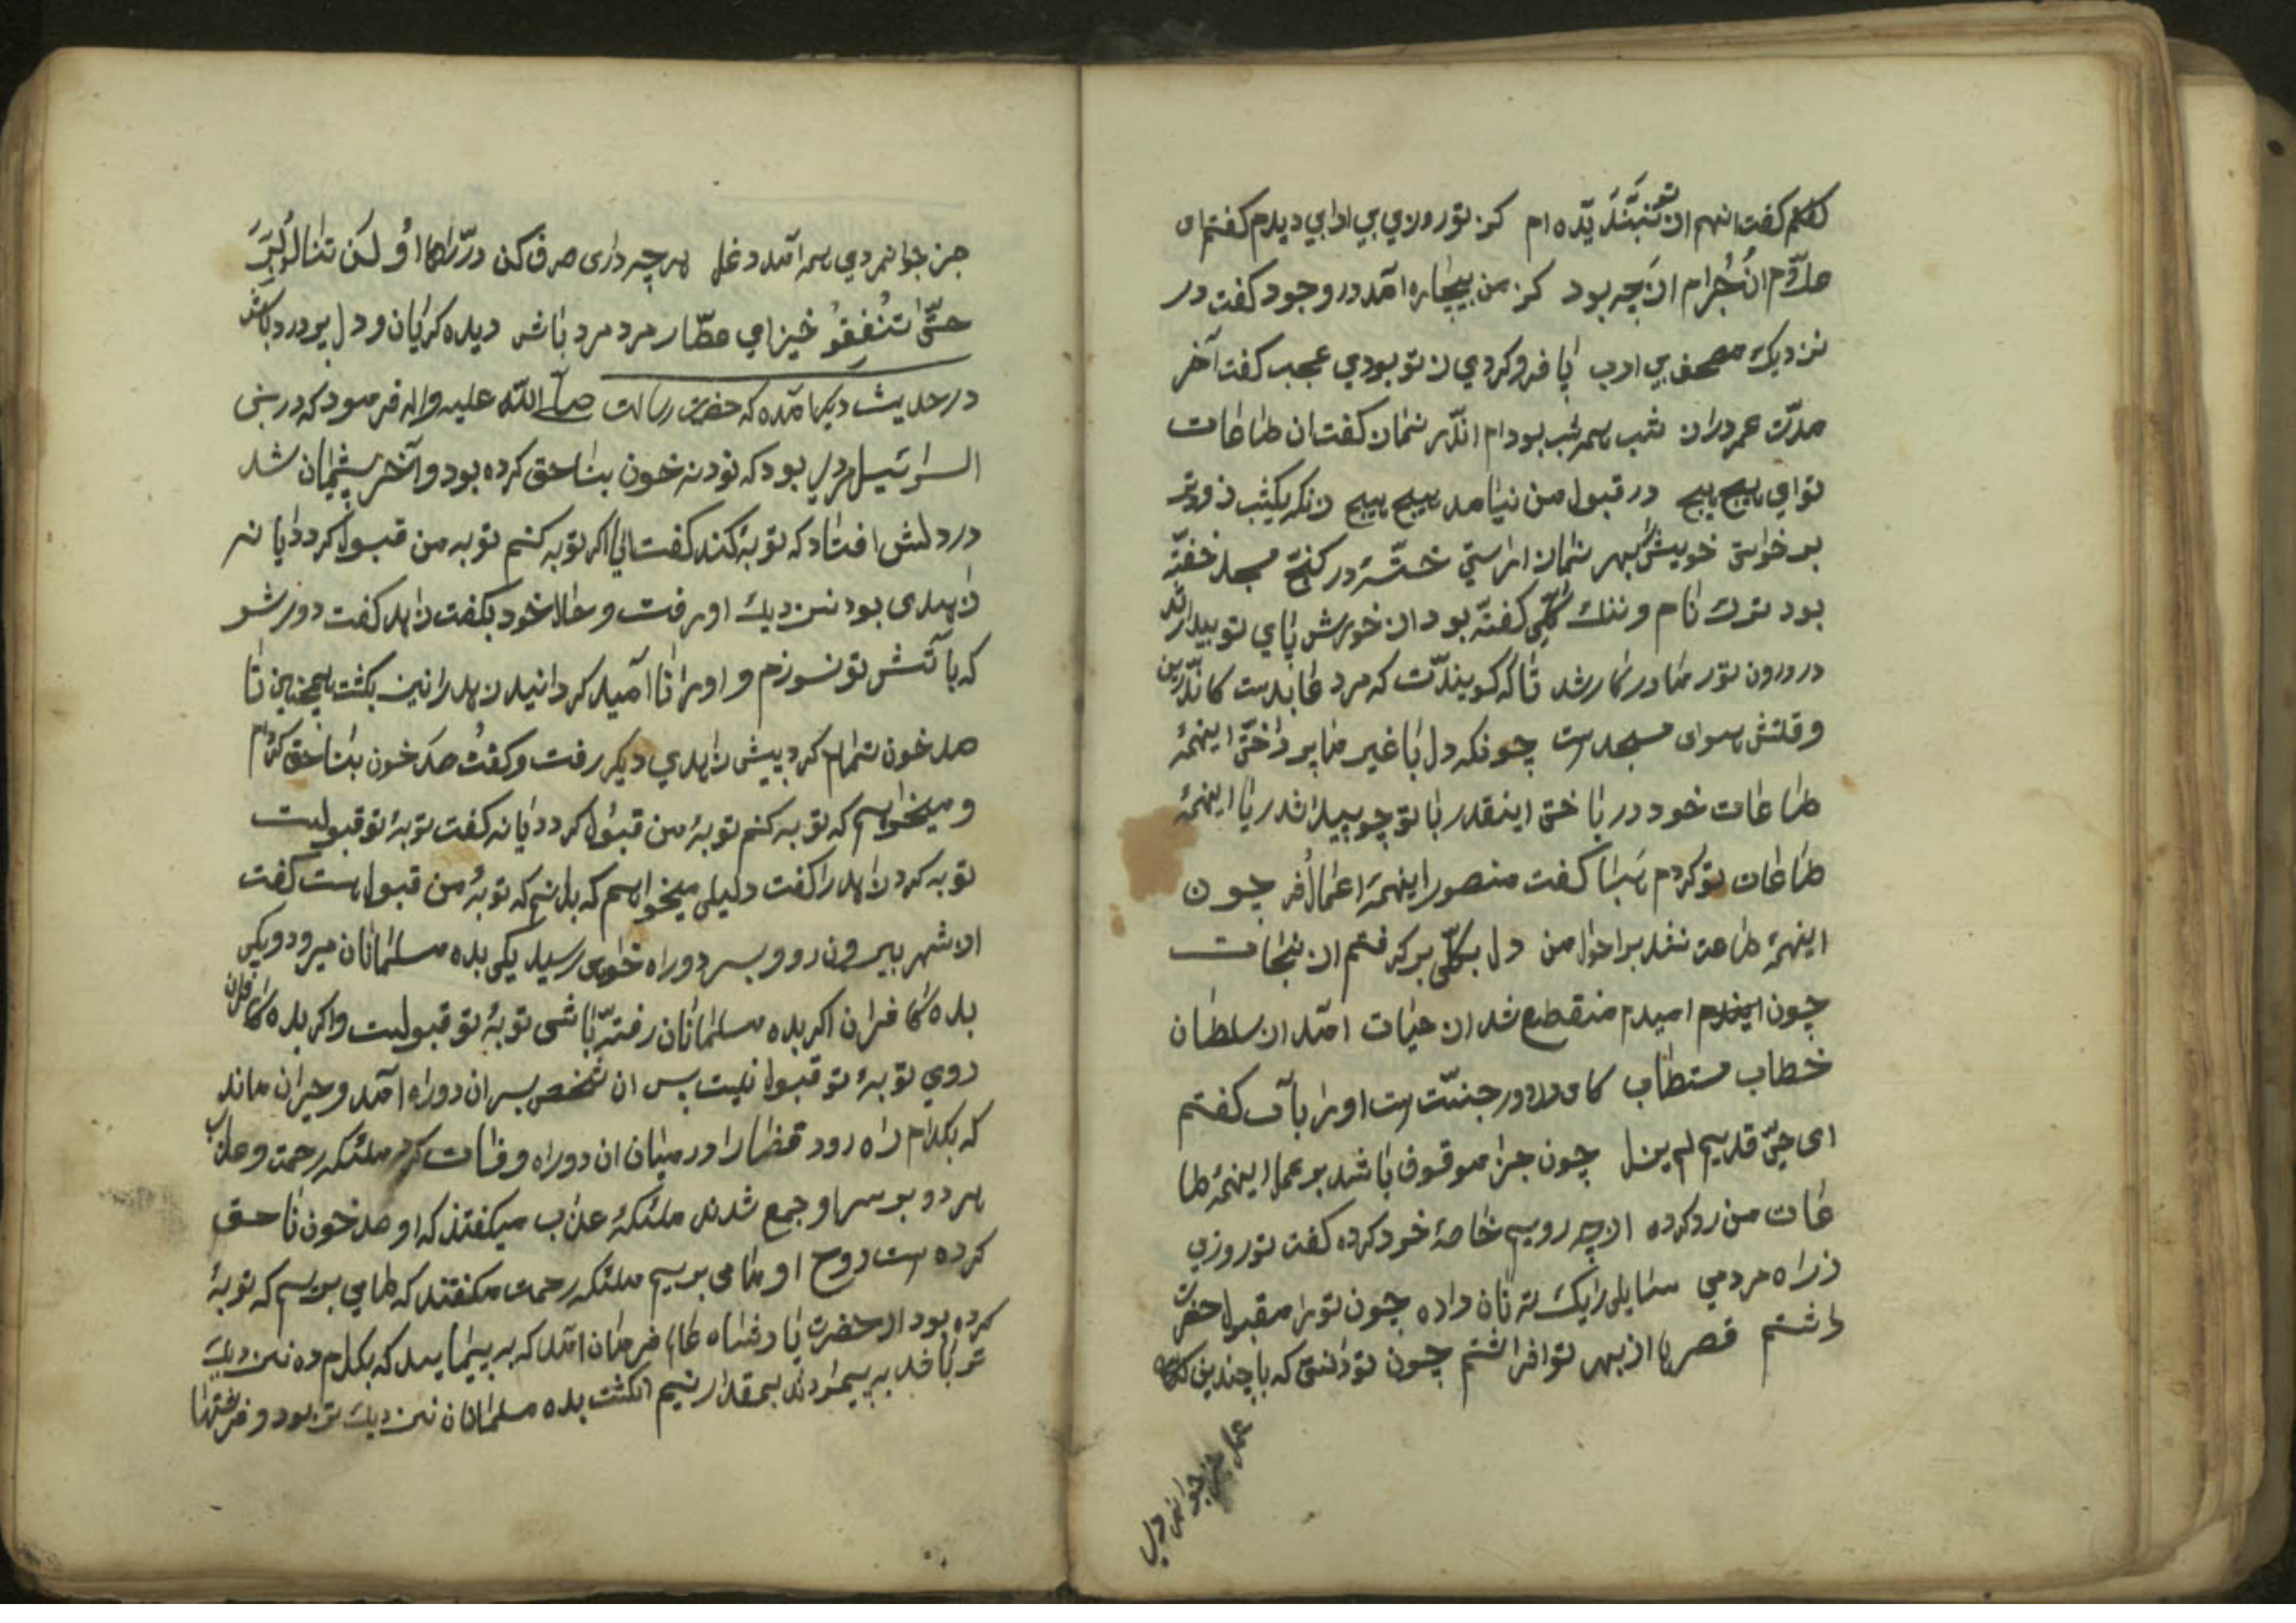 گفت انهم از ام کز تو روزی بی ادابی دیدم گفتم ای
ان جرام از چه بود کز من بیچاره امد در وجود گفت در
نزدیک مصحف بی ادب پا فرو کردی ز تو بودی عجب گفت آخر
مدّت عمر دراز شب همه شب بوده ام اندر نماز گفت ان طاعات
تو ای هیچ هیچ در قبول من نیامد هیچ هیچ زنکه یکشب زودتر
بر خواستی خویش بهر نماز اراستی در کنج مسجد خفته
بود ترک نام و ننک کلّی گفته بود از خورش پای تو بیدار شد
در درون تور در کار شد تا که گویندت که مرد عابدست کاندرین
وقتش سوای مسجدست چونکه دل با غیر ما پرداختی اینهمه
طاعات خود در باختی اینقدر با تو چو پیدا شد ریا اینهمه
طاعات تو کردم هبا گفت منصور اینهمه اعمال چون
اینهمه طاعت نشد بر احوال من دل بکلّی بر گرفتم از نجات
چون امیدم منقطع شد از حیات امد از سلطان
خطاب مستطاب کای در جنّت است او را بآب گفتم
ای حیّ قدیم لم یزل چون جزا موقوف باشد بر عمل اینهمه طا
عات من رد کرده از چه رویم خاصهٔ خود کرده گفت تو روزی
ز راه مردمی سایلی را یک ته نان داده چون تو را مقبول حضرت
داشتم قصرها از بهر تو افراشتم چون تو دانستی که با چندین
عمل جز جوانمردی
جز جوانمردی همه آمد دغل هر چه داری صرف کن در راه او لن تنالوا البرّ
حتّی تنفقو خیز ای عطّار مرد مرد باش دیده گریان و دل پر درد باش
در حدیث دیگر آمده که حضرت رسالت صلّی اللّه علیه و اله فرمود که در بنی
اسرائیل مردی بود که نود نه خون بناحق کرده بود و آخر پشیمان شد
در دلش افتاد که توبه کند گفت ایا اگر توبه کنم توبه من قبول گردد یا نه
زاهدی بود نزدیک او رفت و حال خود بگفت زاهد گفت دور شو
که بآتش تو نسوزم و او را نا آمید گردانید زاهد را نیز بکشت همچنین تا
صد خون تمام کرد پیش زاهدی دیگر رفت و گفت صد خون بناحق کردم
و میخواهم که توبه کنم توبهٔ من قبول گردد یا نه گفت توبهٔ تو قبولست
توبه کرد زاهد را گفت دلیلی میخواهم که بدانم که توبهٔ من قبول است گفت
از شهر بیرون رو و بسر دو راه خواهی رسید یکی بده مسلمانان میرود و یکی
بده کافران اگر بده مسلمانان رفته باشی توبهٔ تو قبولست و اگر بده کافران
روی توبهٔ تو قبول نیست پس ان شخص بسر ان دو راه آمد و حیران ماند
که بکدام راه رود قضا را در میان ان دو راه وفات کرد ملئکه رحمت و عذاب
هر دو بر سر او جمع شدند ملئکهٔ عذاب میگفتند که او صد خون ناحق
کرده است روح او ما می بریم ملئکه رحمت میگفتند که ما می بریم که توبهٔ
کرده بود از حضرت پادشاه عالم فرمان امد که به پیمایید که بکدام ده نزدیک
تر باشد به پیمودند بمقدار نیم انگشت بده مسلمانان نزدیک تر بود و فرشتها